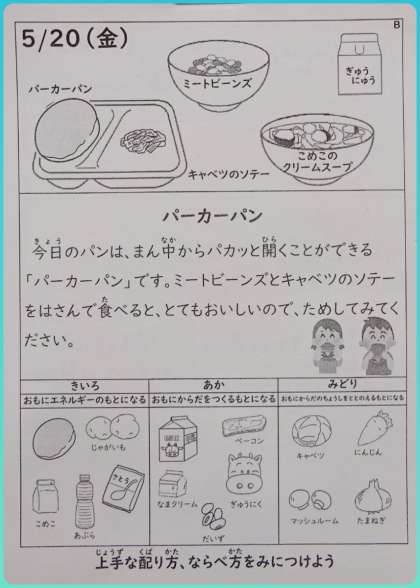 B
5/20(金)
パーカーパン
ミートビーンズ
ぎゅう
にゅう
キャベツのソテー
こめこの
クリームスープ
パーカーパン
今日のパンは、まん中からパカッと開くことができる
「パーカーパン」です。ミートビーンズとキャベツのソテー
をはさんで食べると、とてもおいしいので、ためしてみてく
ださい。
きいろ
おもにエネルギーのもとになる
じゃがいも
こめこ
あぶら
さとう
あか
おもにからだをつくるもとになる
ベーコン
なまクリーム
ぎゅうにく
だいず
みどり
おもにからだのちょうしをととのえるもとになる
キャベツ
にんじん
マッシュルーム
たまねぎ
上手な配り方、ならべ方をみにつけよう